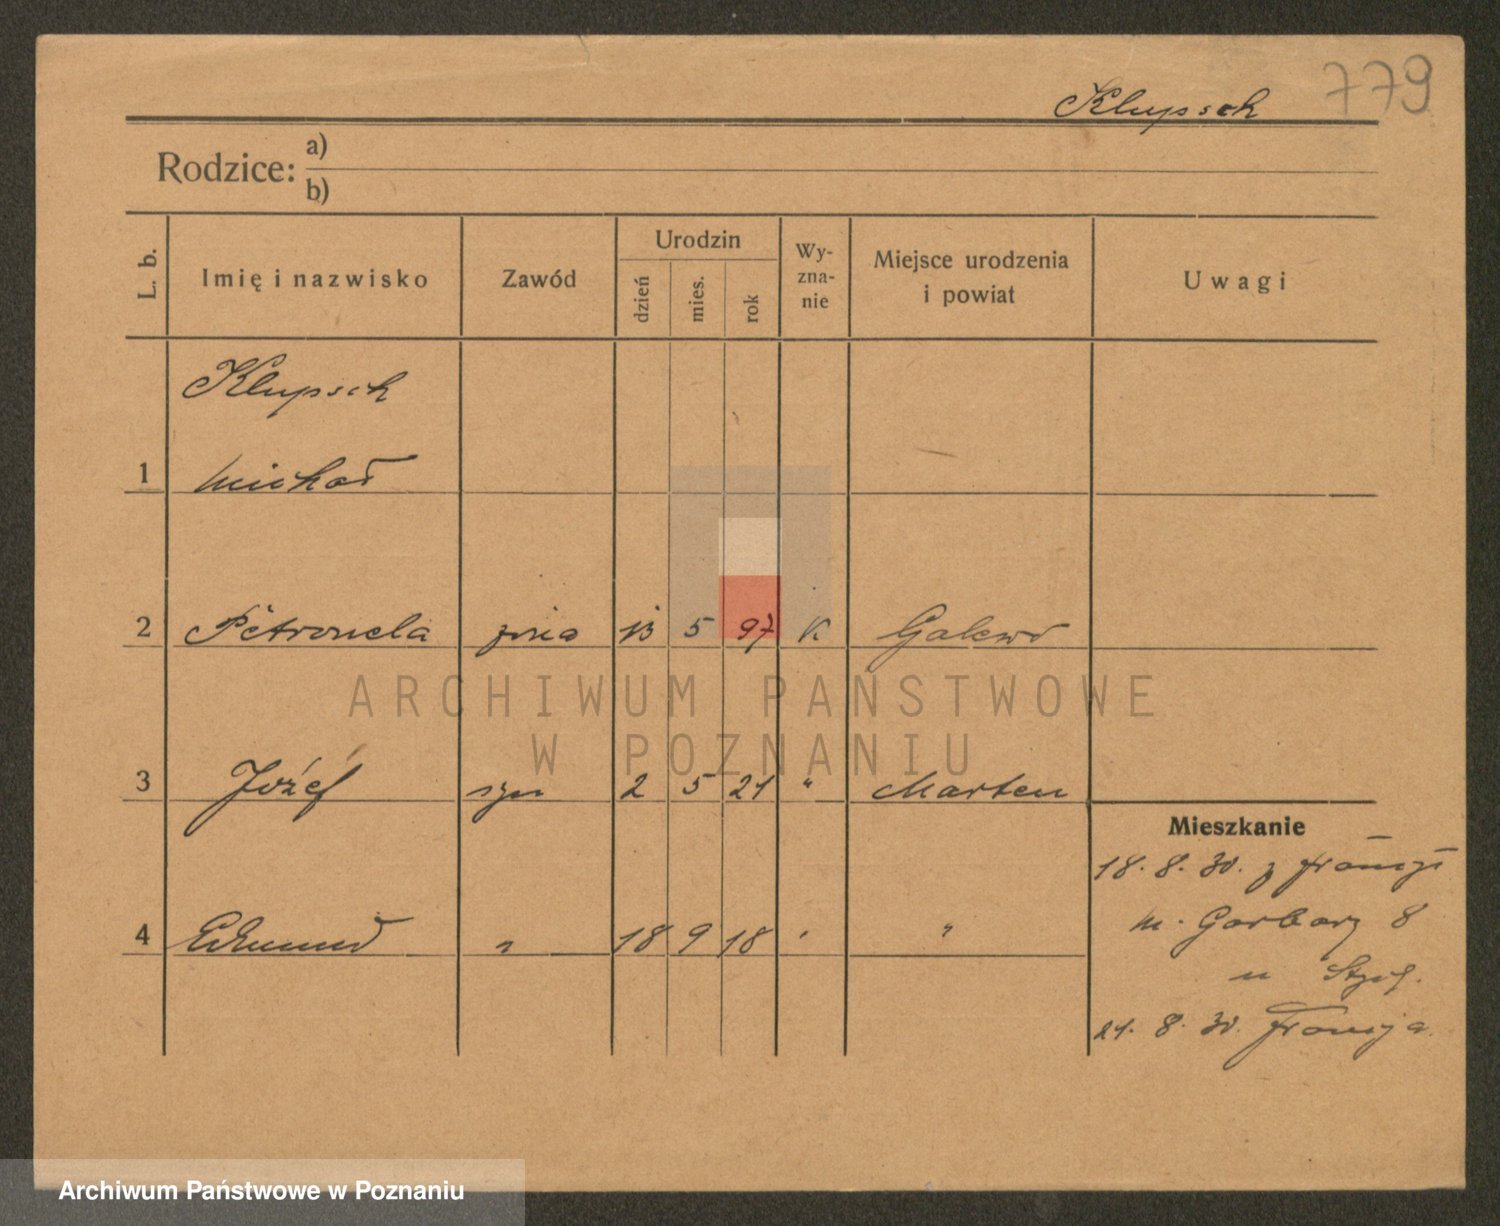 779
Klupsch
Rodzice: a)
b)
L. b.
Imię i nazwisko
Zawód
Urodzin
dzień
mies.
rok
Wy-
zna-
nie
Miejsce urodzenia
i powiat
Uwagi
Klupsch
1 Michał
2 Petronela żona 13 5 97 K Galewo
3 Józef syn 2 5 21 " Marten
4 Edmund " 18 9 18 " "
Mieszkanie
18. 8. 30. z Francji
m. Garbary 8
u
21. 8. 30. Francja
ARCHIWUM PAŃSTWOWE
W POZNANIU
Archiwum Państwowe w Poznaniu